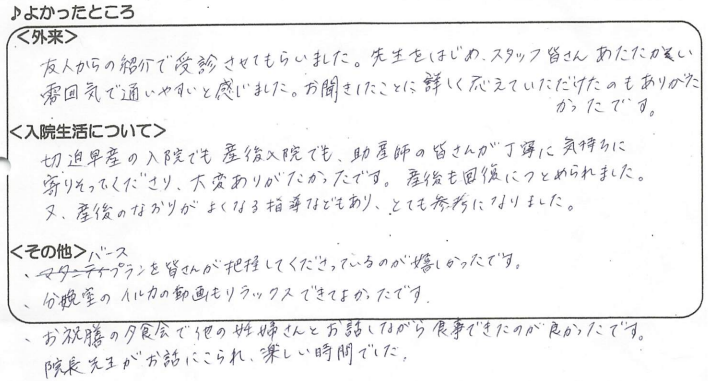 ♪よかったところ
<外来>
友人からの紹介で受診させてもらいました。先生をはじめ、スタッフ皆さんあたたかい
雰囲気で通いやすいと感じました。お聞きしたことに詳しく応えていただけたのもありがた
かったです。
<入院生活について>
切迫早産の入院でも産後入院でも、助産師の皆さんが丁寧に気持ちに
寄りそってくださり、大変ありがたかったです。産後も回復につとめられました。
又、産後のなおりがよくなる指導などもあり、とても参考になりました。
<その他>
バース
、マタニティプランを皆さんが把握してくださっているのが嬉しかったです。
、分娩室のイルカの動画もリラックスできてよかったです.
、お祝膳の夕食会で他の妊婦さんとお話しながら食事できたのが良かったです。
院長先生がお話にこられ、楽しい時間でした.